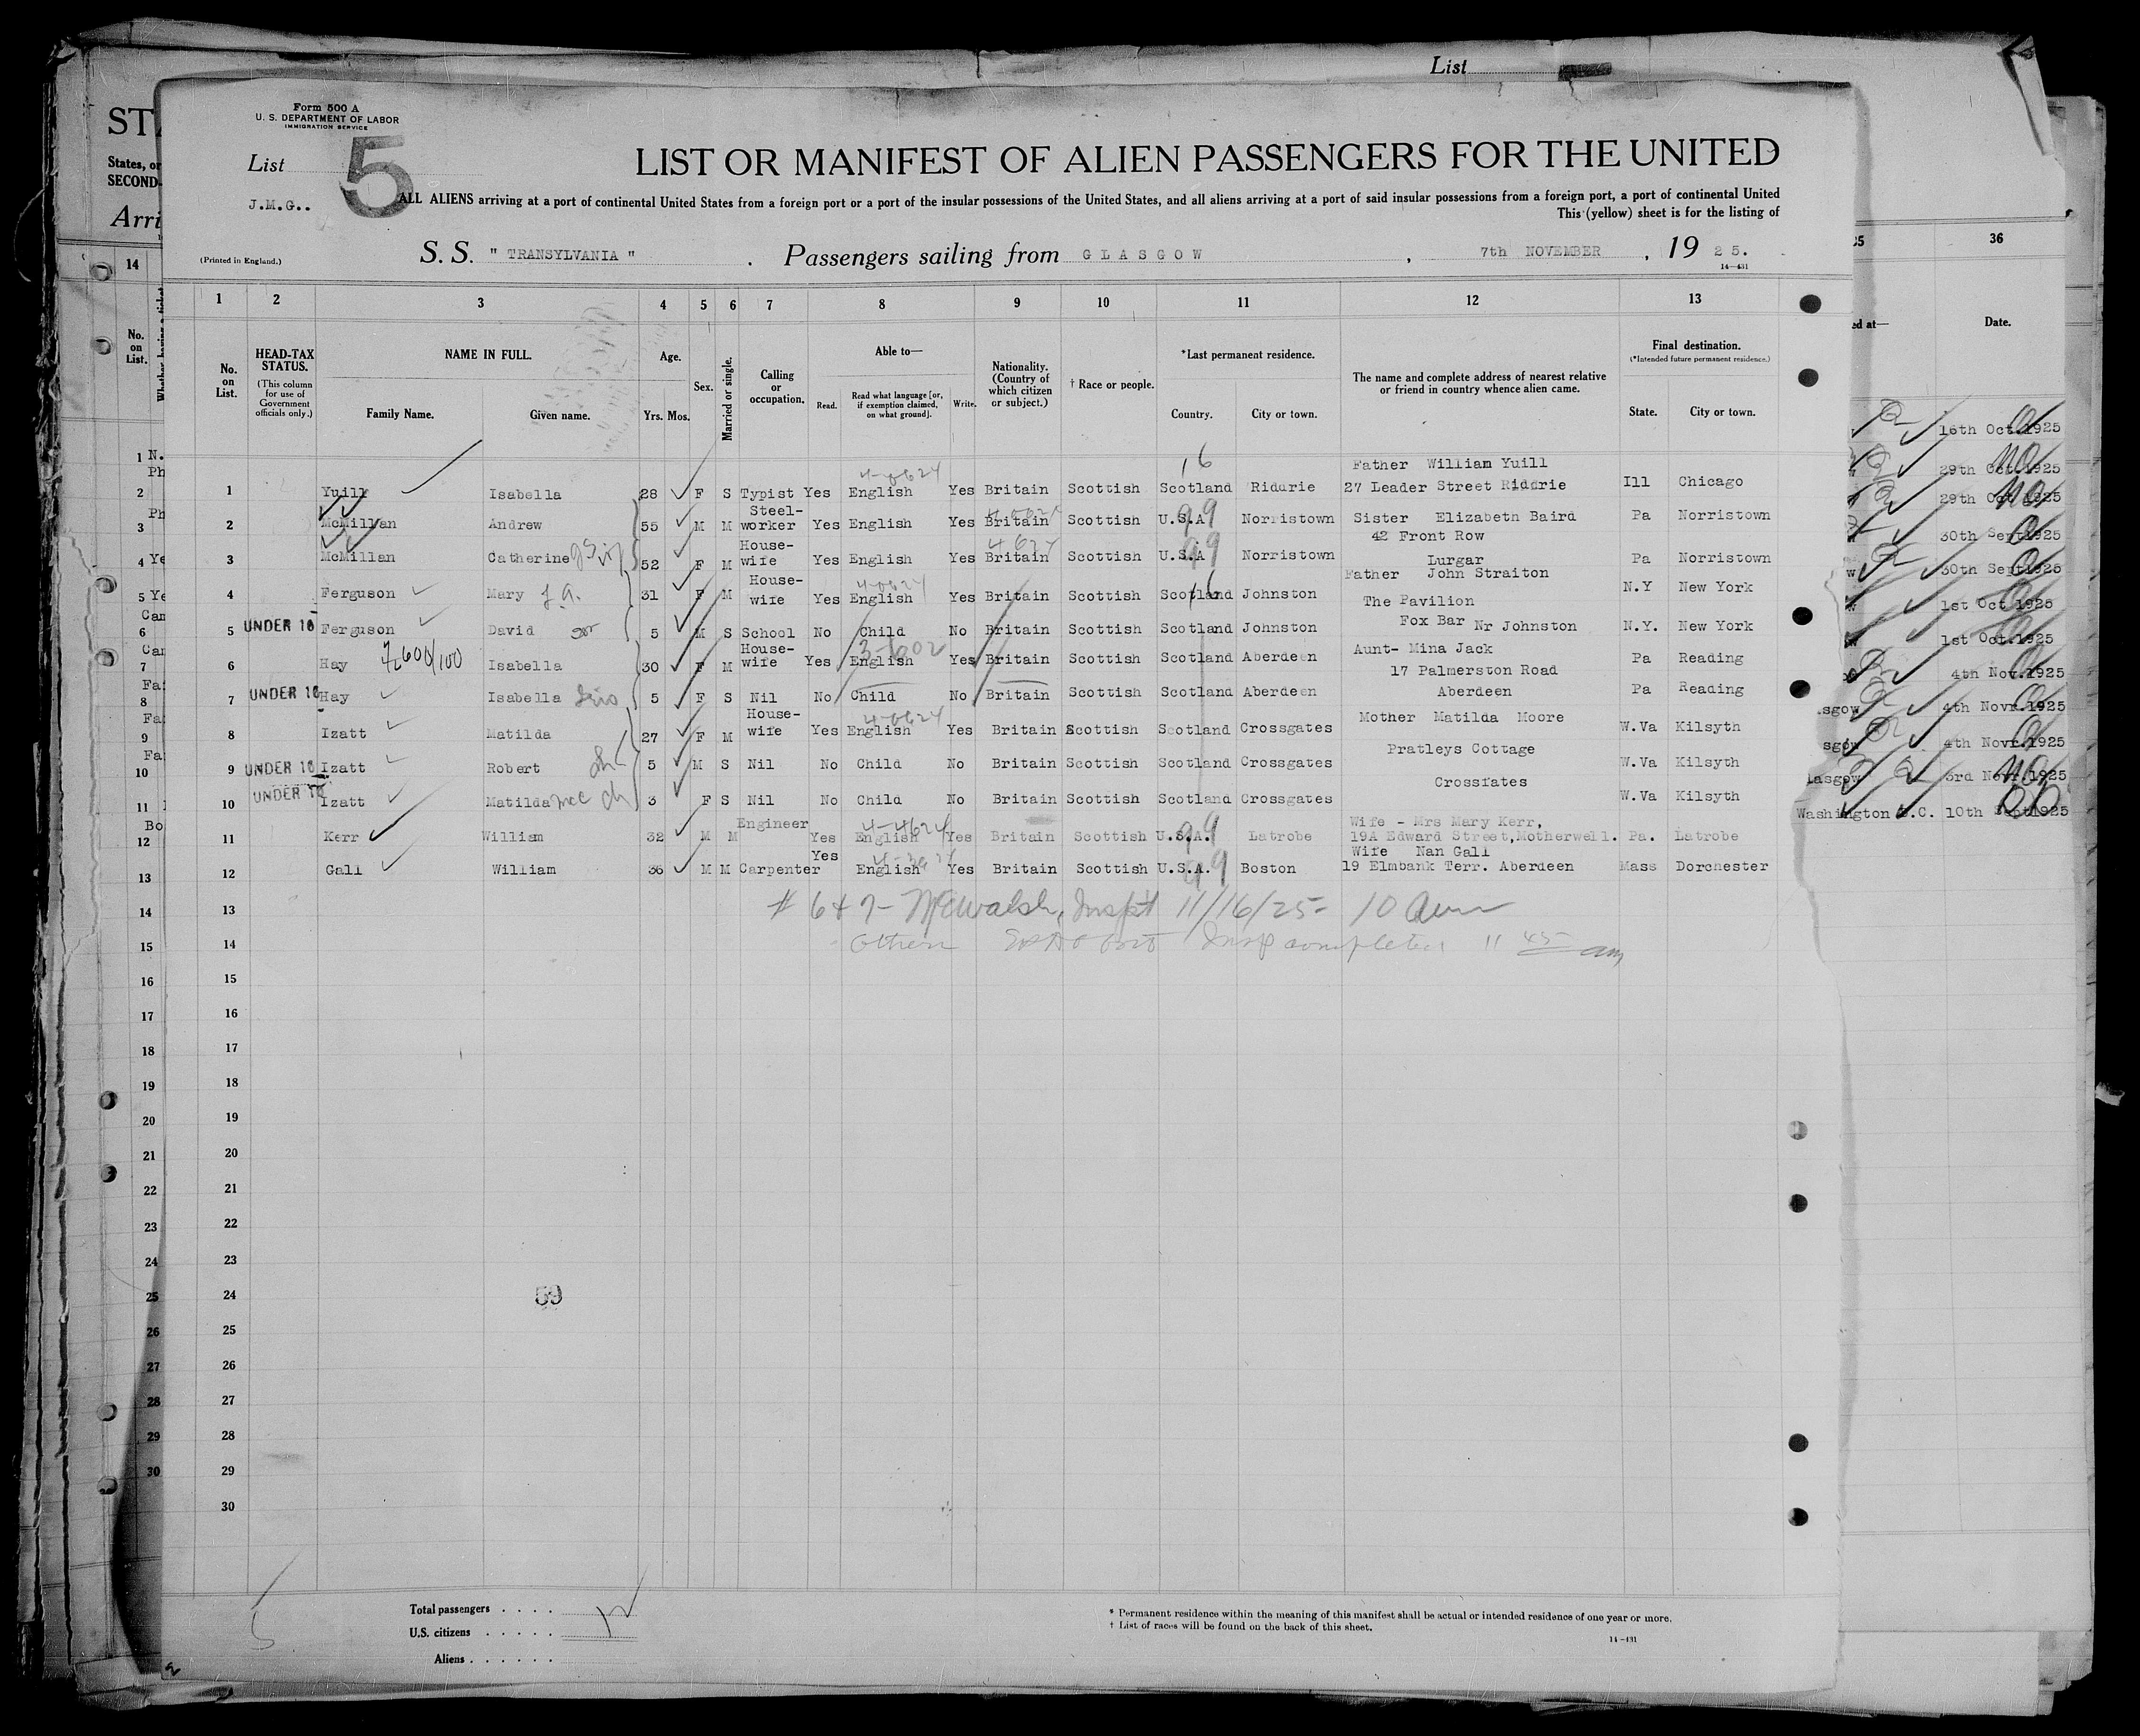 List
Form 500 A
U. S. DEPARTMENT OF LABOR
IMMIGRATION SERVICE
List 5
J.M.G..
LIST OR MANIFEST OF ALIEN PASSENGERS FOR THE UNITED
ALL ALIENS arriving at a port of continental United States from a foreign port or a port of the insular possessions of the United States, and all aliens arriving at a port of said insular possessions from a foreign port, a port of continental United
This (yellow) sheet is for the listing of
(Printed in England.)
S. S. " TRANSYLVANIA " . Passengers sailing from GLASGOW , 7th NOVEMBER , 19 25.
14—431
1 2 3 4 5 6 7 8 9 10 11 12 13
No. on List.
HEAD-TAX STATUS.
(This column for use of Government officials only.)
NAME IN FULL.
Family Name. Given name.
Age.
Yrs. Mos.
Sex.
Married or single.
Calling or occupation.
Able to—
Read. Read what language [or, if exemption claimed, on what ground]. Write.
Nationality. (Country of which citizen or subject.)
† Race or people.
*Last permanent residence.
Country. City or town.
The name and complete address of nearest relative or friend in country whence alien came.
Final destination.
(*Intended future permanent residence.)
State. City or town.
1 Yuill Isabella 28 F S Typist Yes English Yes Britain Scottish Scotland Riddrie Father William Yuill 27 Leader Street Riddrie Ill Chicago
2 McMillan Andrew 55 M M Steel-worker Yes English Yes Britain Scottish U.S.A Norristown Sister Elizabeth Baird Pa Norristown
42 Front Row
3 McMillan Catherine 52 F M House-wife Yes English Yes Britain Scottish U.S.A Norristown Lurgar Pa Norristown
4 Ferguson Mary 31 F M House-wife Yes English Yes Britain Scottish Scotland Johnston Father John Straiton The Pavilion N.Y New York
5 UNDER 16 Ferguson David 5 M S School No Child No Britain Scottish Scotland Johnston Fox Bar Nr Johnston N.Y. New York
6 Hay Isabella 30 F M House-wife Yes English Yes Britain Scottish Scotland Aberdeen Aunt- Mina Jack 17 Palmerston Road Pa Reading
7 UNDER 16 Hay Isabella 5 F S Nil No Child No Britain Scottish Scotland Aberdeen Aberdeen Pa Reading
8 Izatt Matilda 27 F M House-wife Yes English Yes Britain Scottish Scotland Crossgates Mother Matilda Moore W.Va Kilsyth
9 UNDER 16 Izatt Robert 5 M S Nil No Child No Britain Scottish Scotland Crossgates Pratleys Cottage W.Va Kilsyth
10 UNDER 16 Izatt Matilda 3 F S Nil No Child No Britain Scottish Scotland Crossgates Crossfates W.Va Kilsyth
11 Kerr William 32 M M Engineer Yes English Yes Britain Scottish U.S.A. Latrobe Wife - Mrs Mary Kerr, 19A Edward Street, Motherwell. Pa. Latrobe
12 Gall William 36 M M Carpenter Yes English Yes Britain Scottish U.S.A. Boston Wife Nan Gall 19 Elmbank Terr. Aberdeen Mass Dorchester
13
# 6 & 7 - Walsh, Inspt 11/16/25 - 10 am
14
Insp completed 11 45 am
15
16
17
18
19
20
21
22
23
24
59
25
26
27
28
29
30
Total passengers . . . . 12
U.S. citizens . . . . .
Aliens . . . . . .
* Permanent residence within the meaning of this manifest shall be actual or intended residence of one year or more.
† List of races will be found on the back of this sheet.
14—431
States, or
SECOND-
Arri
14
No. on List.
1
2
3
4 Ye
5 Ye
6
7
8
9
10
11
12
13
14
15
16
17
18
19
20
21
22
23
24
25
26
27
28
29
30
36
Date.
16th Oct. 1925
29th Oct. 1925
29th Oct 1925
30th Sept 1925
30th Sept 1925
1st Oct 1925
1st Oct. 1925
4th Nov. 1925
4th Novr. 1925
4th Novr. 1925
3rd Novr. 1925
Washington D.C. 10th Sept 1925